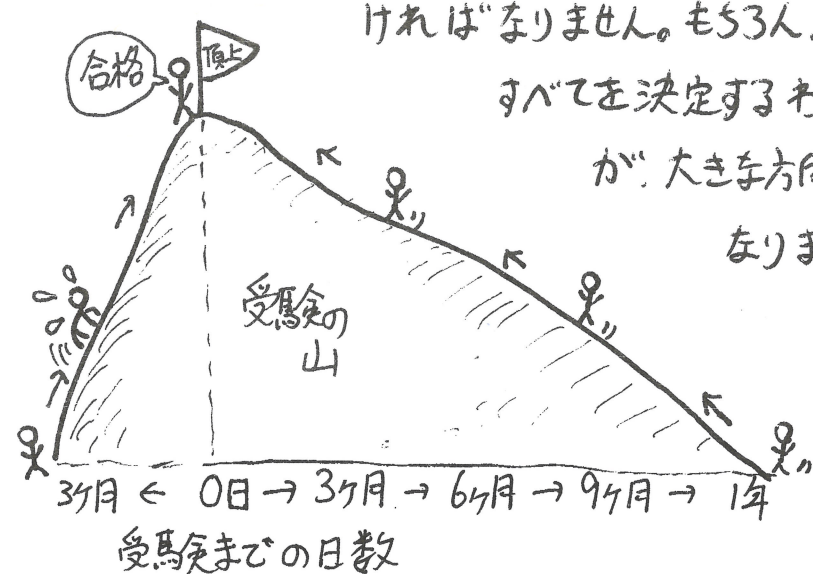 ければなりません。もちろん、
すべてを決定するわ
が、大きな方向
なりま
頂上
合格
受験の
山
3ヶ月 ← 0日 → 3ヶ月 → 6ヶ月 → 9ヶ月 → 1年
受験までの日数